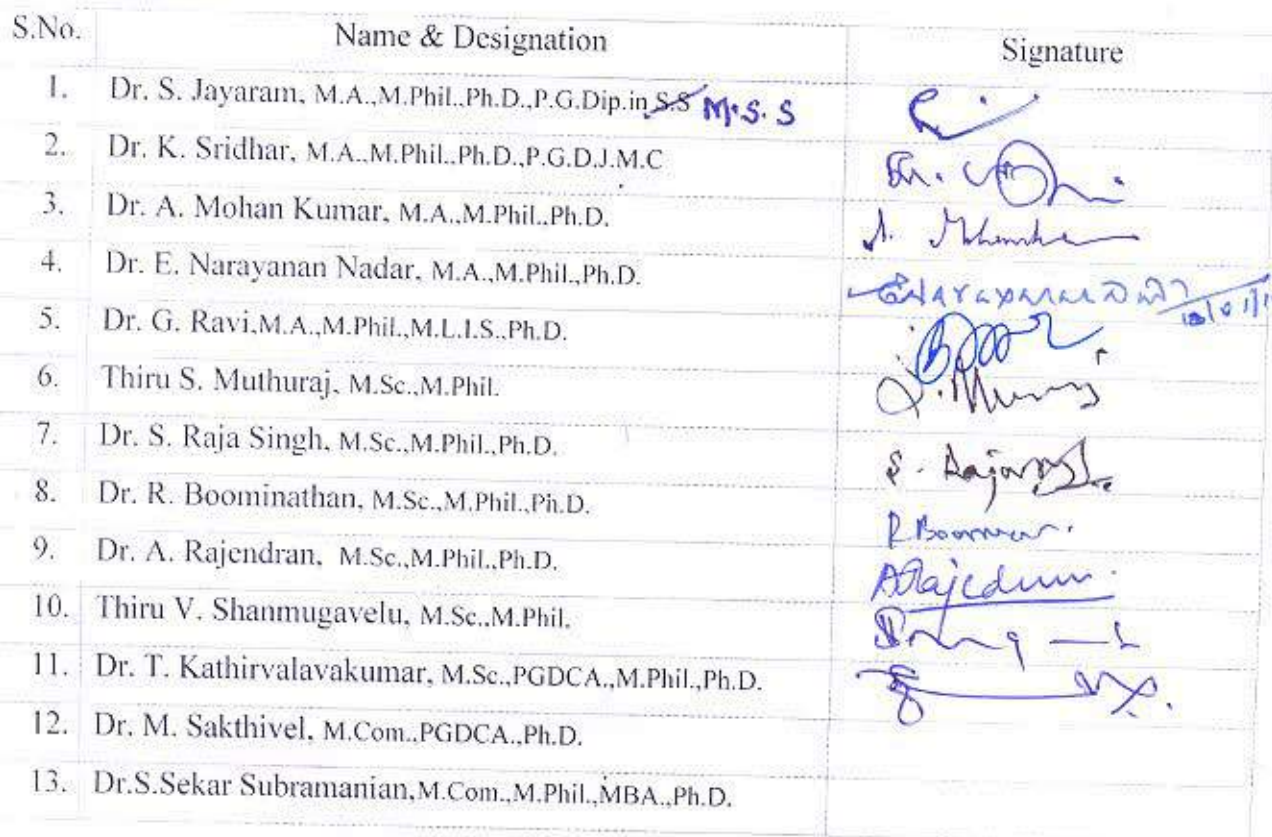 S.No. Name & Designation Signature
1. Dr. S. Jayaram, M.A.,M.Phil.,Ph.D.,P.G.Dip.in S.S M.S.S
2. Dr. K. Sridhar, M.A.,M.Phil.,Ph.D.,P.G.D.J.M.C
3. Dr. A. Mohan Kumar, M.A.,M.Phil.,Ph.D.
4. Dr. E. Narayanan Nadar, M.A.,M.Phil.,Ph.D.
5. Dr. G. Ravi,M.A.,M.Phil.,M.L.I.S.,Ph.D.
6. Thiru S. Muthuraj, M.Sc.,M.Phil.
7. Dr. S. Raja Singh, M.Sc.,M.Phil.,Ph.D.
8. Dr. R. Boominathan, M.Sc.,M.Phil.,Ph.D.
9. Dr. A. Rajendran, M.Sc.,M.Phil.,Ph.D.
10. Thiru V. Shanmugavelu, M.Sc.,M.Phil.
11. Dr. T. Kathirvalavakumar, M.Sc.,PGDCA.,M.Phil.,Ph.D.
12. Dr. M. Sakthivel, M.Com.,PGDCA.,Ph.D.
13. Dr.S.Sekar Subramanian,M.Com.,M.Phil.,MBA.,Ph.D.